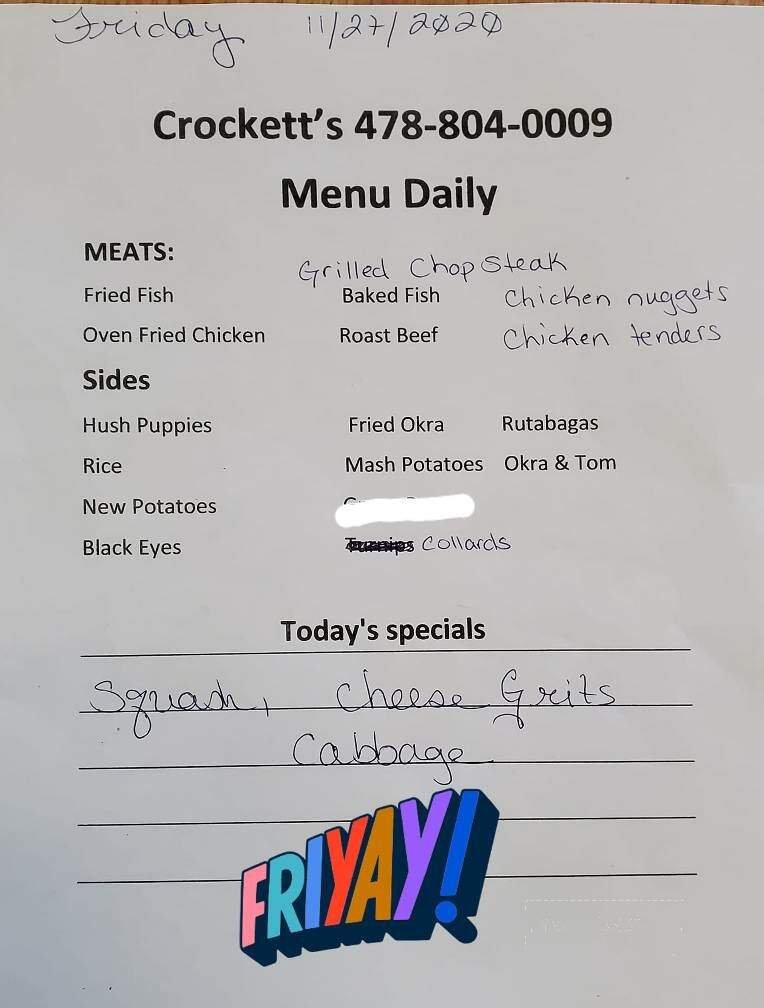 Friday 11/27/2020
Crockett's 478-804-0009
Menu Daily
MEATS:
Grilled Chop Steak
Fried Fish Baked Fish Chicken nuggets
Oven Fried Chicken Roast Beef Chicken tenders
Sides
Hush Puppies Fried Okra Rutabagas
Rice Mash Potatoes Okra & Tom
New Potatoes
Black Eyes Turnips Collards
Today's specials
Squash, Cheese Grits
Cabbage
FRIYAY!